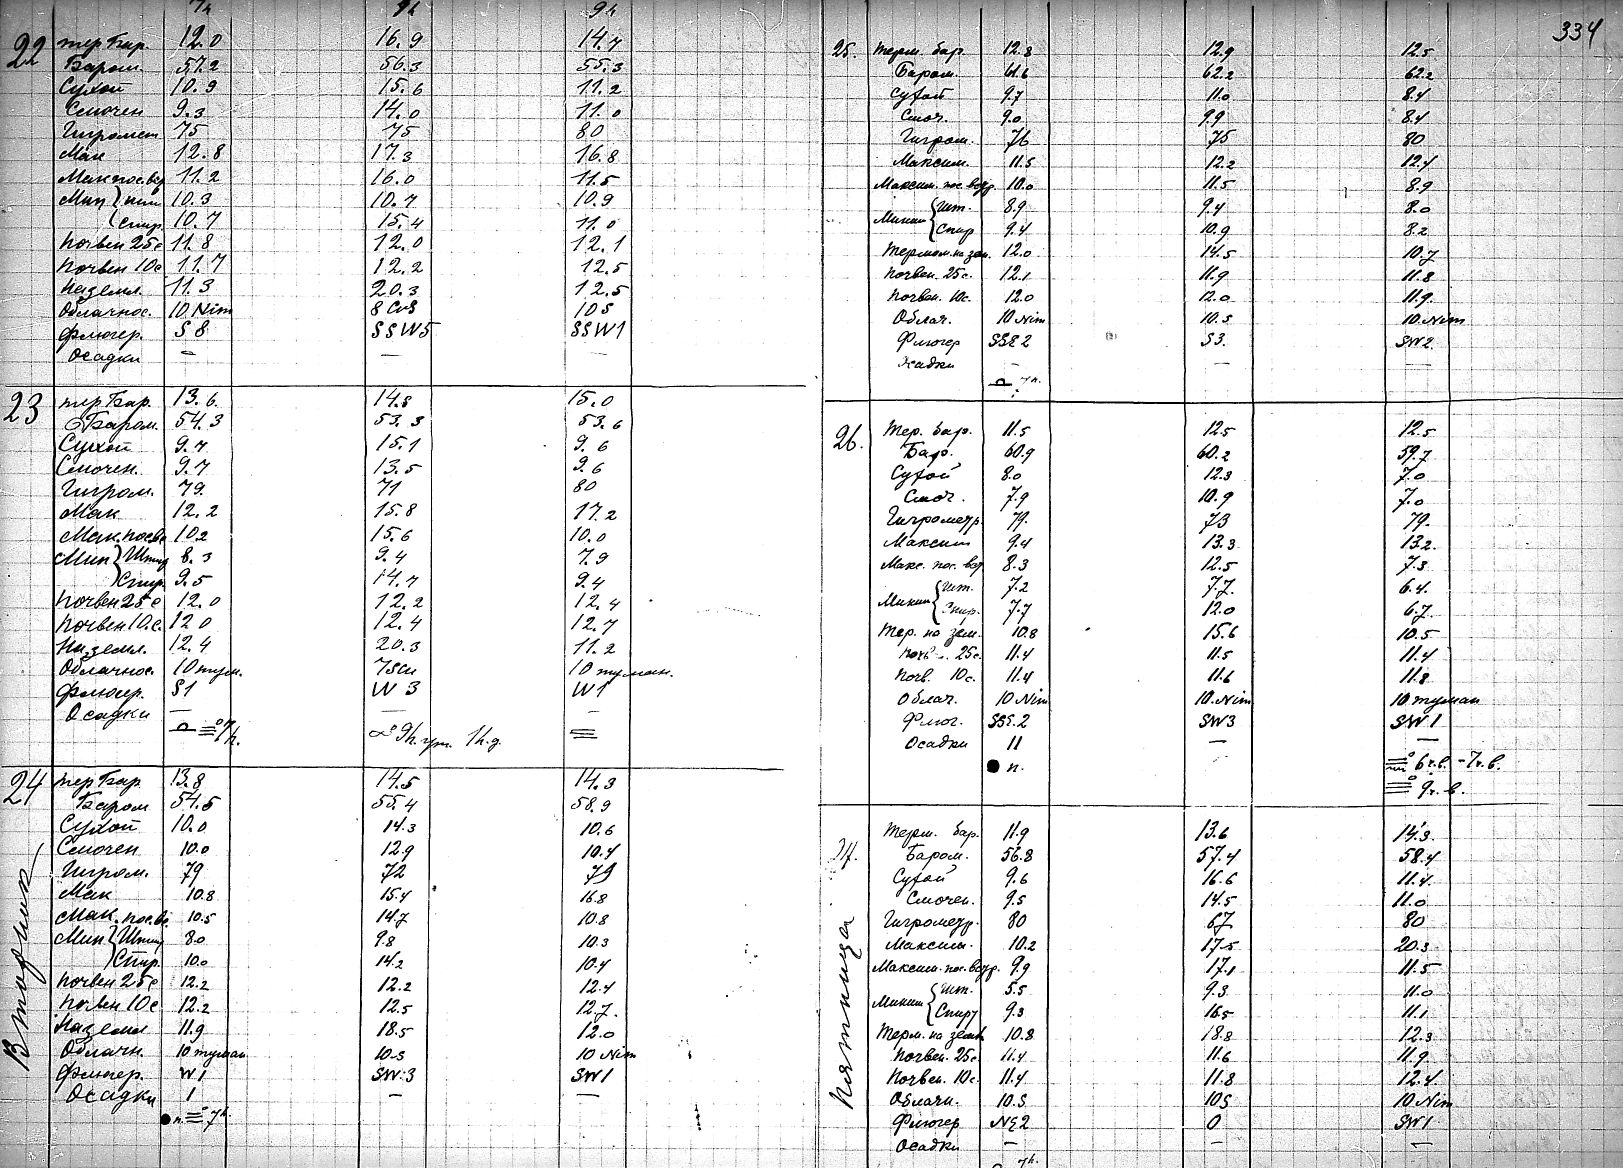 7h 9h
22 терБар. 12.0 16.9 14.7
Баром. 57.2 56.3 55.3
Сухой 10.9 15.6 11.2
Смочен 9.3 14.0 11.0
Гигромет 75 75 80
Мак 12.8 17.3 16.8
Мак пос. вс 11.2 16.0 11.5
Мин 10.3 10.7 10.9
Спир. 10.7 15.4 11.0
Почвен 25с 11.8 12.0 12.1
Почвен 10с 11.7 12.2 12.5
Наземл. 11.3 20.3 12.5
Облачнос. 10 Nim 8 10 S
Флюгер. S 8 SSW5 SSW1
Осадки — — —
23 терБар. 13.6 14.8 15.0
Баром. 54.3 53.3 53.6
Сухой 9.7 15.1 9.6
Смочен. 9.7 13.5 9.6
Гигром. 79. 71 80
Мак 12.2 15.8 17.2
Мак. пос вс 10.2 15.6 10.0
Мин Штиф 8.3 9.4 7.9
Спир. 9.5 14.7 9.4
Почвен 25с 12.0 12.2 12.4
Почвен 10.с. 12.0 12.4 12.7
На земл. 12.4 20.3 11.2
Облачнос. 10 тум. 7 10 туман.
Флюгер. S1 W 3 W1
Осадки — — —
≡° 7h. ∞° 9h. ут. 1h. д. ≡
24 терБар 13.8 14.5 14.3
Баром 54.5 55.4 58.9
Сухой 10.0 14.3 10.6
Смочен 10.0 12.9 10.4
Гигром. 79 72 79
Мак 10.8 15.4 16.8
Мак. пос. вс. 10.5 14.7 10.8
Мин Штиф 8.0 9.8 10.3
Спир. 10.0 14.2 10.4
Почвен 25с 12.2 12.2 12.4
Почвен 10с 12.2 12.5 12.7.
Наземл 11.9 18.5 12.0
Облачн. 10 туман 10 S 10 Nim
Флюгер. W1 SW.3 SW1
Осадки 1 — —
● n. ≡° 7h
Вторник
334
25. Терм. бар. 12.8 12.9 12.5
Баром. 61.6 62.2 62.2
Сухой 9.7 11.0 8.4
Смоч. 9.0 9.9 8.4
Гигром. 76 75 80
Максим. 11.5 12.2 12.4
Максим. пос. встр. 10.0 11.5 8.9
Миним Шт. 8.9 9.4 8.0
Спир 9.4 10.9 8.2
Термом. на зем. 12.0 14.5 10.7
Почвен. 25с. 12.1 11.9 11.8
Почвен. 10с. 12.0 12.0 11.9.
Облач. 10 Nim 10.S 10 Nim
Флюгер SSE 2 S3. SW2.
Осадки — —
7h.
26. Тер. бар. 11.5 12.5 12.5
Баро. 60.9 60.2 59.7
Сухой 8.0 12.3 7.0
Смоч. 7.9 10.9 7.0
Гигрометр. 79. 73 79.
Максим 9.4 13.3 13.2.
Макс. пос. вст 8.3 12.5 7.3
Миним Шт. 7.2 7.7. 6.4.
Спир. 7.7 12.0 6.7.
Тер. на зем. 10.8 15.6 10.5
Почв. 25с. 11.4 11.5 11.4
Почв. 10с. 11.4 11.6 11.8
Облач. 10 Nim 10. Nim 10 туман
Флюг. SSE. 2 SW3 SW1
Осадки 11 — —
● n. ≡° 6 ч. в. - 7 ч. в.
≡° 9 ч. в.
27. Терм. бар. 11.9 13.6 14.3.
Баром. 56.8 57.4 58.4
Сухой 9.6 16.6 11.4.
Смочен. 9.5 14.5 11.0
Гигрометр. 80 67 80
Максим. 10.2 17.5 20.3
Максим. пос. встр. 9.9 17.1 11.5
Миним Шт. 5.5 9.3 11.0
Спирт 9.3 16.5 11.1
Терм. на земл 10.8 18.8 12.3
Почвен. 25с. 11.4 11.6 11.9
Почвен. 10с. 11.4 11.8 12.4
Облачн. 10.S 10S 10 Nim
Флюгер NE2 0 SW1
Осадки — — —
7h.
Пятница